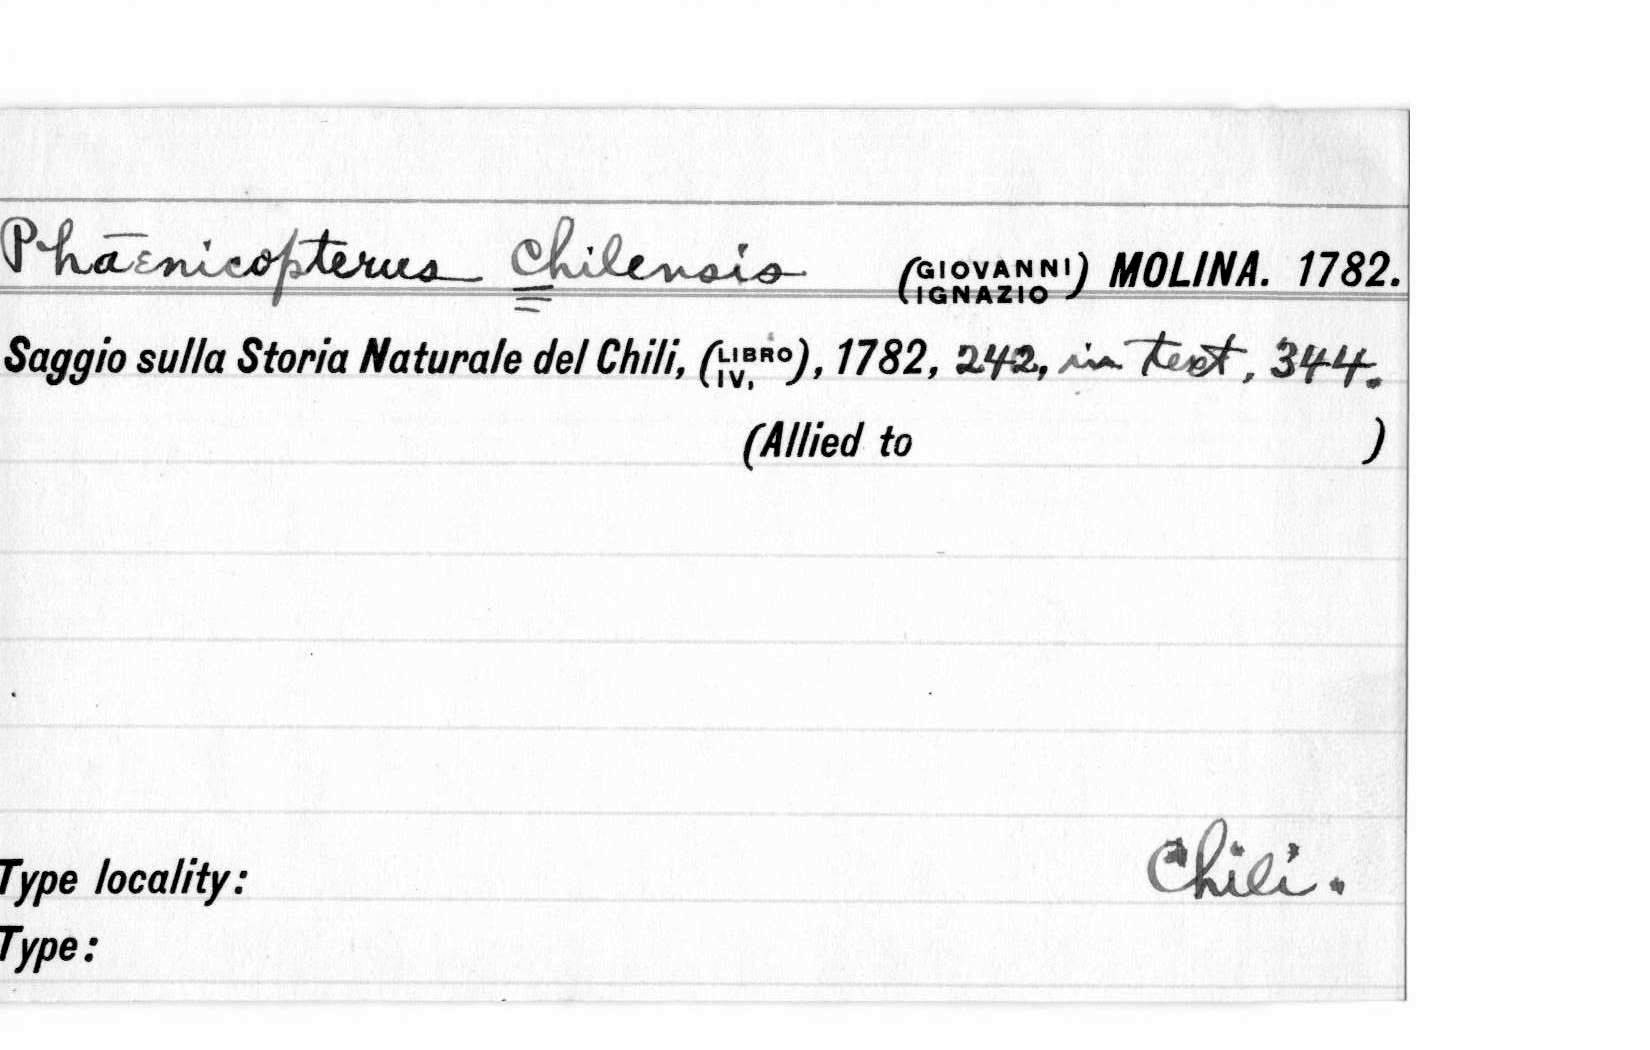 Phænicopterus Chilensis (GIOVANNI IGNAZIO) MOLINA. 1782.
Saggio sulla Storia Naturale del Chili, (LIBRO IV,), 1782, 242, in text, 344.
(Allied to )
Type locality: Chili.
Type: